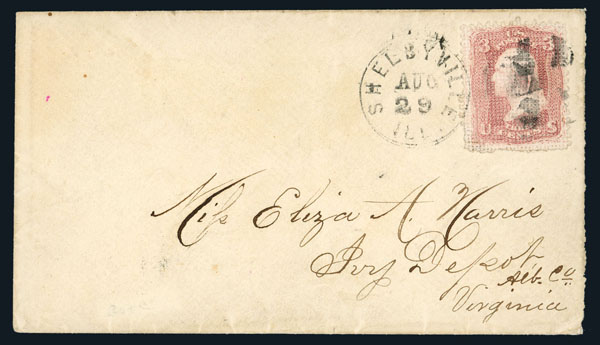 SHELBYVILLE
AUG
29
ILL.
3 3
U S
Miss Eliza A. Harris
Ivy Depot,
Alb. Co.
Virginia